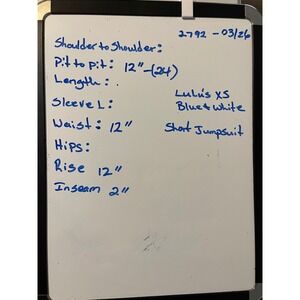 2792 - 03/26
Shoulder to Shoulder:
Pit to pit: 12"-(24)
Length:
Sleeve L:
Lulu's XS
Blue & White
Waist: 12"
Short Jumpsuit
Hips:
Rise 12"
Inseam 2"